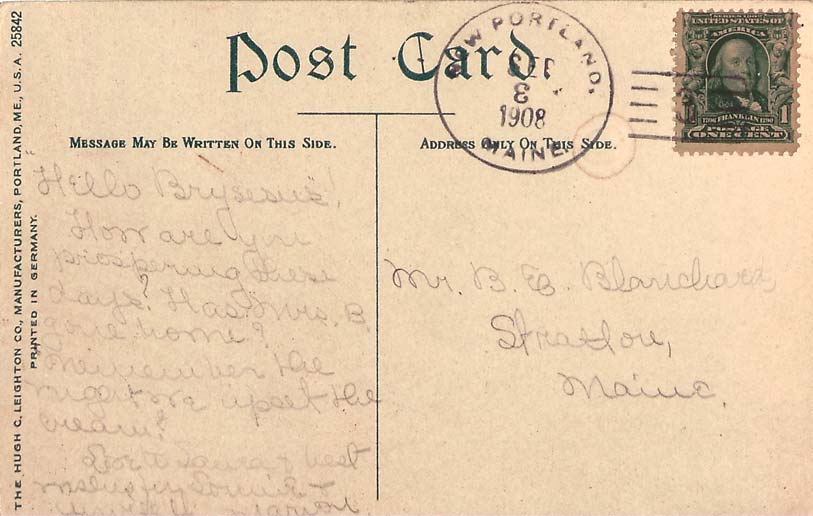 THE HUGH C. LEIGHTON CO., MANUFACTURERS, PORTLAND, ME., U.S.A. 25842
PRINTED IN GERMANY.
Post Card
NEW PORTLAND,
SEP
8
1908
MAINE.
SERIES 1902
UNITED STATES OF
AMERICA
FRANKLIN
1
POSTAGE
ONE CENT
MESSAGE MAY BE WRITTEN ON THIS SIDE.
ADDRESS ONLY ON THIS SIDE.
Hello
How are you
prospering these
days? Has Mrs. B.
gone home?
Remember the
night we upset the
cream?
best
Marion
Mr. B. E. Blanchard,
Stratton,
Maine.